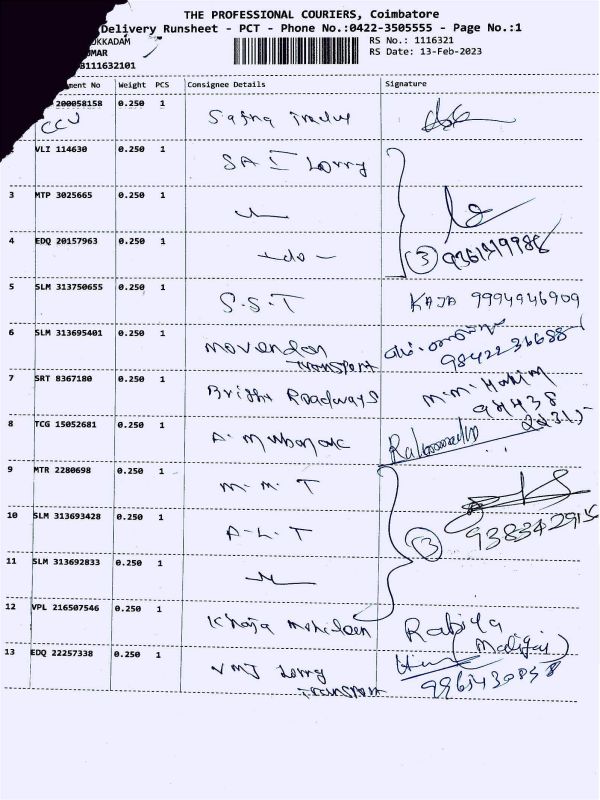 THE PROFESSIONAL COURIERS, Coimbatore
Delivery Runsheet - PCT - Phone No.:0422-3505555 - Page No.:1
UKKADAM
RS No.: 1116321
UMAR
RS Date: 13-Feb-2023
B111632101
ment No Weight PCS Consignee Details Signature
200058158 0.250 1
CCU
VLI 114630 0.250 1 SAI Lorry
3 MTP 3025665 0.250 1
4 EDQ 20157963 0.250 1 -do- (3)
5 SLM 313750655 0.250 1 S.S.T KAJA 9994946909
6 SLM 313695401 0.250 1 Movendan Transport
9842236688
7 SRT 8367180 0.250 1 Bright Roadways M.M. Hakim
94438
22315
8 TCG 15052681 0.250 1 A. Mubarak
9 MTR 2280698 0.250 1 M.M.T
10 SLM 313693428 0.250 1 A.L.T (3)
11 SLM 313692833 0.250 1
12 VPL 216507546 0.250 1 Khaja Mohideen Rabiya
(Maligai)
13 EDQ 22257338 0.250 1 VMJ Lorry Transport